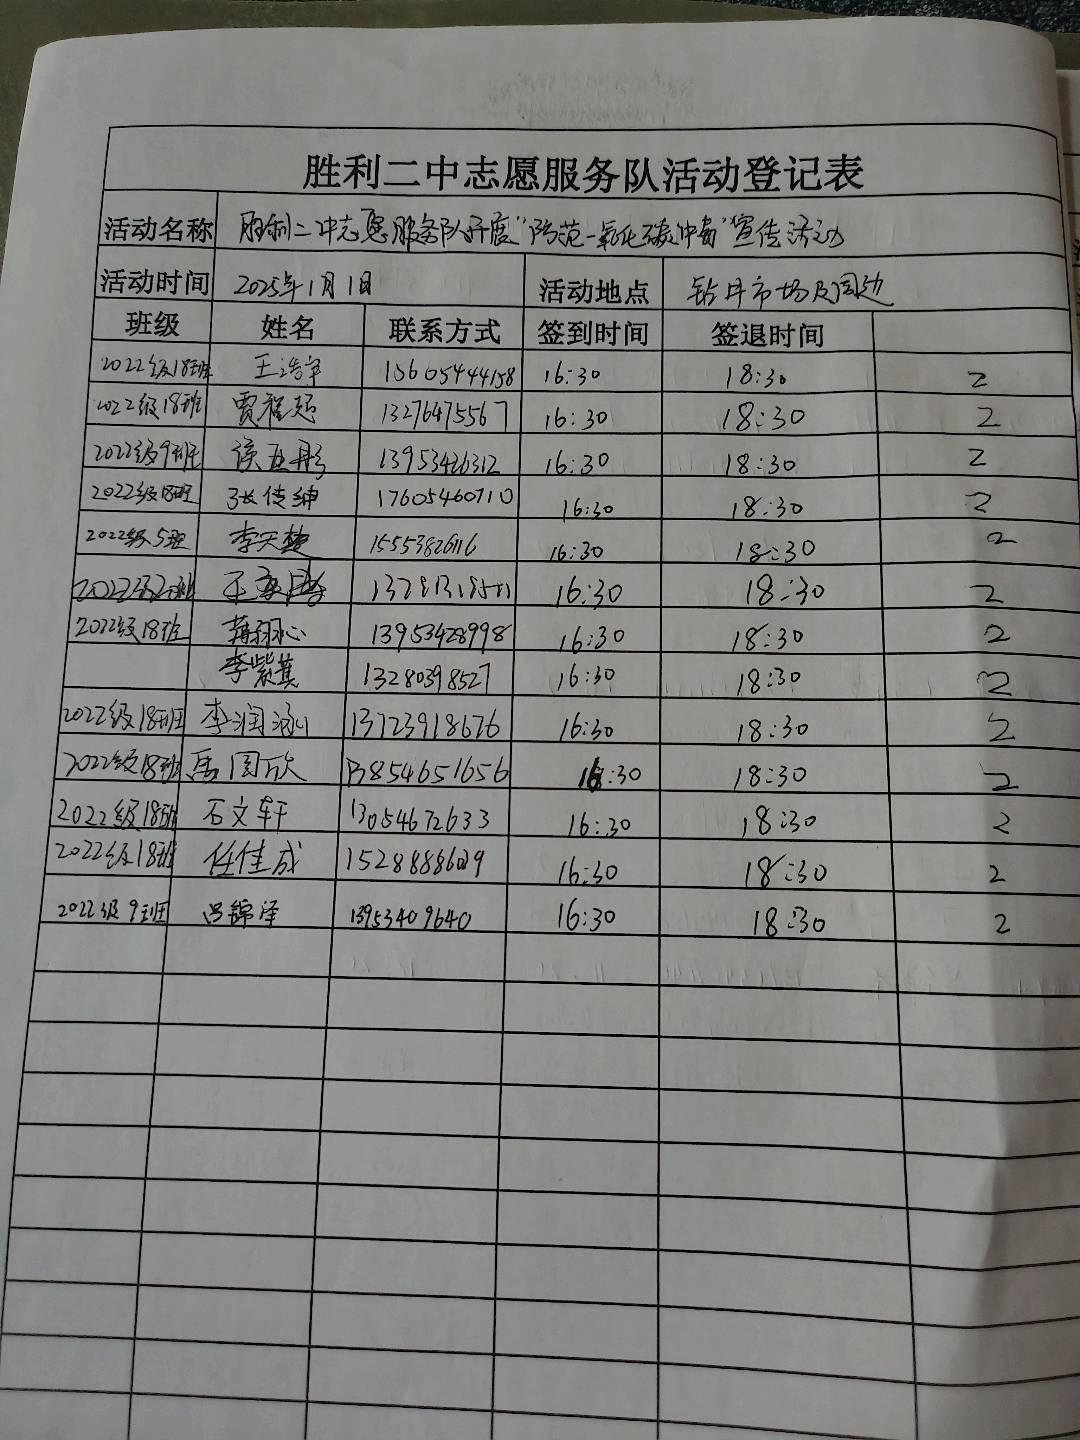 胜利二中志愿服务队活动登记表
活动名称 胜利二中志愿服务队开展“防范一氧化碳中毒”宣传活动
活动时间 2025年1月1日 活动地点 钻井市场及周边
班级 姓名 联系方式 签到时间 签退时间
2022级18班 王浩宇 15605444158 16:30 18:30 2
2022级18班 贾程超 13276475567 16:30 18:30 2
2022级9班 侯亚彤 13953426312 16:30 18:30 2
2022级18班 张传绅 17605460710 16:30 18:30 2
2022级5班 李天楚 15553826116 16:30 18:30 2
16:30 18:30 2
2022级18班 蒋翔心 13953428998 16:30 18:30 2
李紫萁 13280398527 16:30 18:30 2
2022级18班 李润涵 13723918676 16:30 18:30 2
2022级18班 周欣 13854651656 16:30 18:30 2
2022级18班 石文轩 13054672633 16:30 18:30 2
2022级18班 任佳成 16:30 18:30 2
2022级9班 吕锦泽 13953409640 16:30 18:30 2